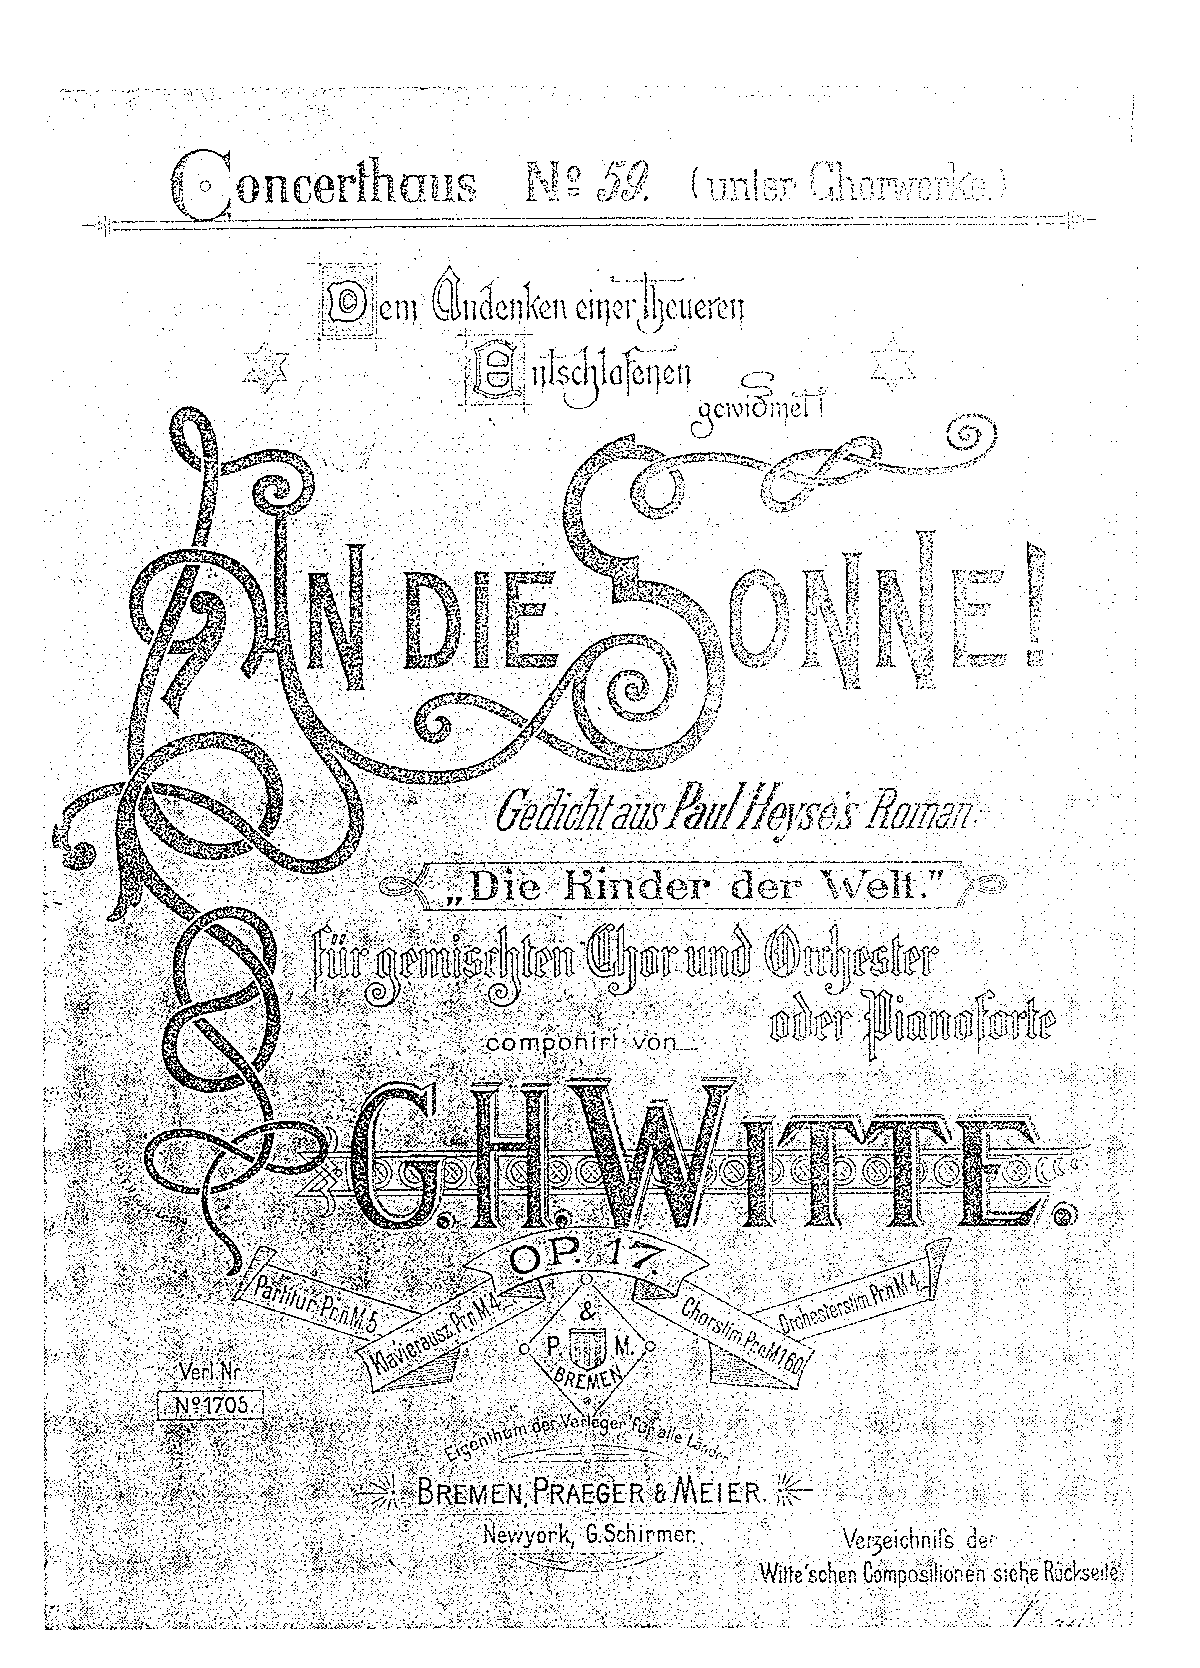 Concerthaus No 59. (unter Chorwerke.)
Dem Andenken einer theueren
Entschlafenen
gewidmet!
AN DIE SONNE!
Gedicht aus Paul Heyse's Roman
„Die Kinder der Welt."
für gemischten Chor und Orchester
oder Pianoforte
componirt von
G.H. WITTE.
OP. 17.
Partitur Pr. n M. 5.
Klavierausz. Pr. n M. 4.
Chorstim. Pr. n M 1.60
Orchesterstim. Pr. n M 4.
P. & M.
BREMEN
Verl. Nr.
No 1705.
Eigenthum der Verleger für alle Länder
BREMEN, PRAEGER & MEIER.
Newyork, G. Schirmer.
Verzeichniſs der
Witte'schen Compositionen siehe Rückseite